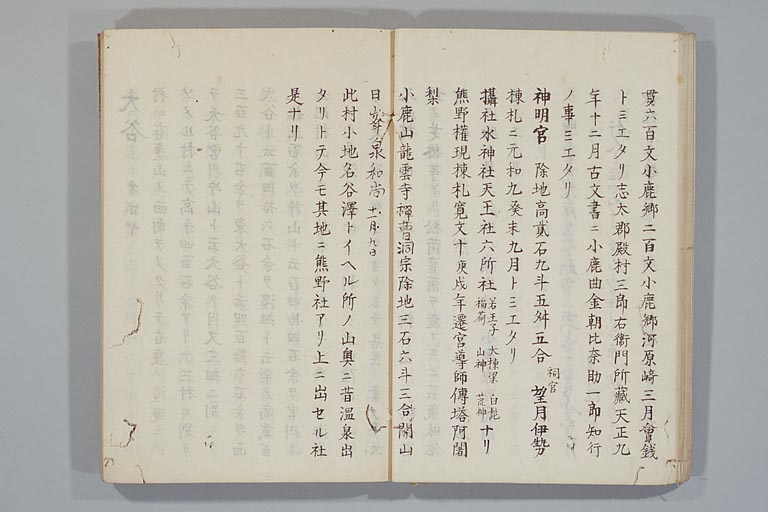 貫六百文小鹿郷二百文小鹿郷河原﨑三月會錢
トミエタリ志太郡殿村三郎右衛門所藏天正九
年十二月古文書ニ小鹿曲金朝比奈助一郎知行
ノ事ミエタリ
神明宮 除地高貳石九斗五舛五合 祠官 望月伊勢
棟札ニ元和九癸未九月トミエタリ
攝社水神社天王社六所社 若王子 大棟梁 白髭 稲荷 山神 荒神 ナリ
熊野權現棟札寛文十庚戌年遷宮導師傳塔阿闍
梨
小鹿山龍雲寺禅曹洞宗除地三石六斗三合開山
日泉和尚十一月九日
此村小地名谷澤トイヘル所ノ山奥ニ昔温泉出
タリトテ今モ其地ニ熊野社アリ上ニ出セル社
是ナリ